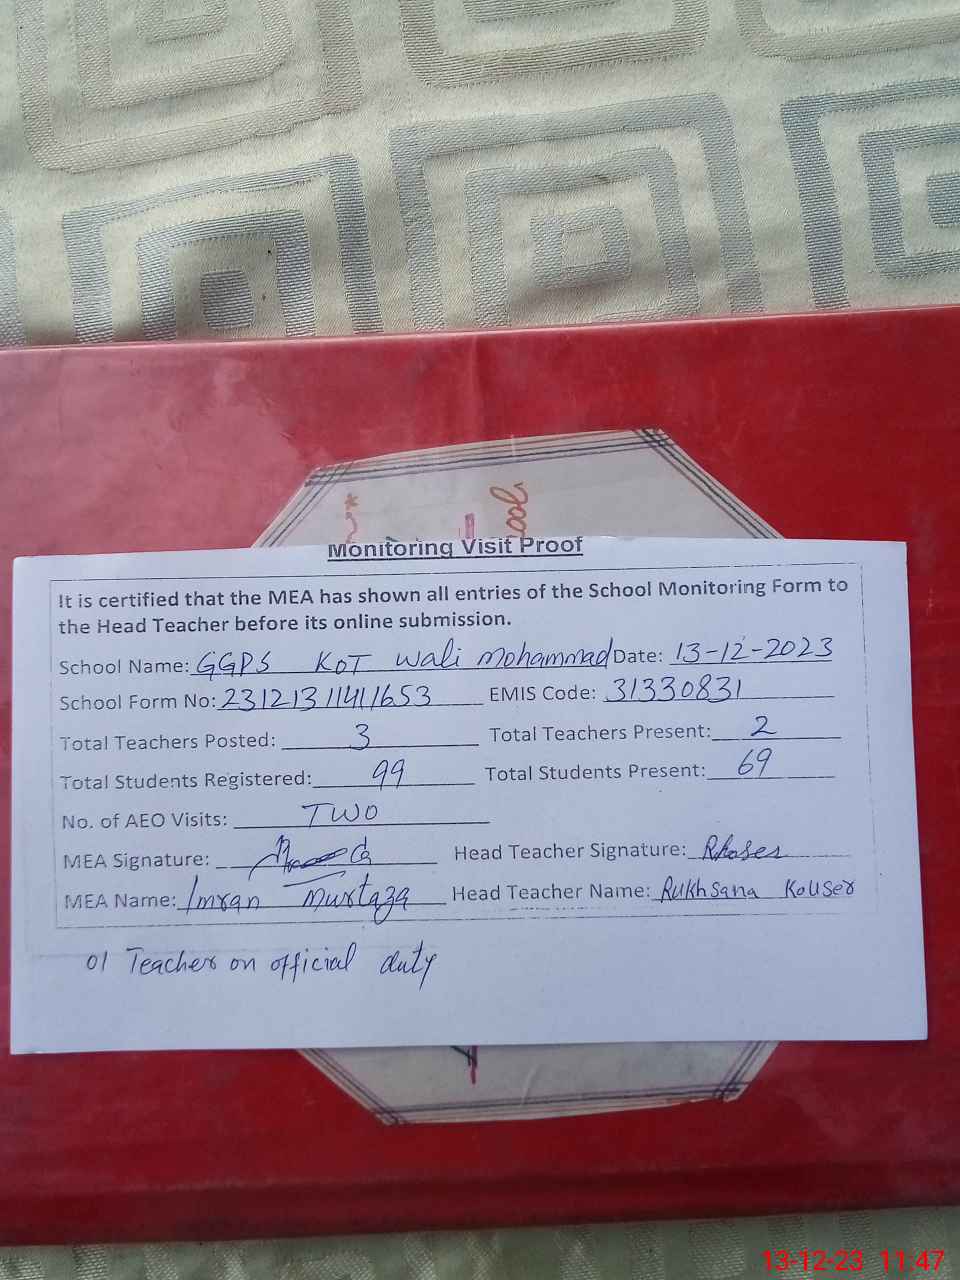 ool
Monitoring Visit Proof
It is certified that the MEA has shown all entries of the School Monitoring Form to
the Head Teacher before its online submission.
School Name: GGPS KOT Wali Mohammad Date: 13-12-2023
School Form No: 23121311411653 EMIS Code: 31330831
Total Teachers Posted: 3 Total Teachers Present: 2
Total Students Registered: 99 Total Students Present: 69
No. of AEO Visits: TWO
MEA Signature: Head Teacher Signature:
MEA Name: Imran Murtaza Head Teacher Name: Rukhsana Kouser
01 Teacher on official duty
13-12-23 11:47